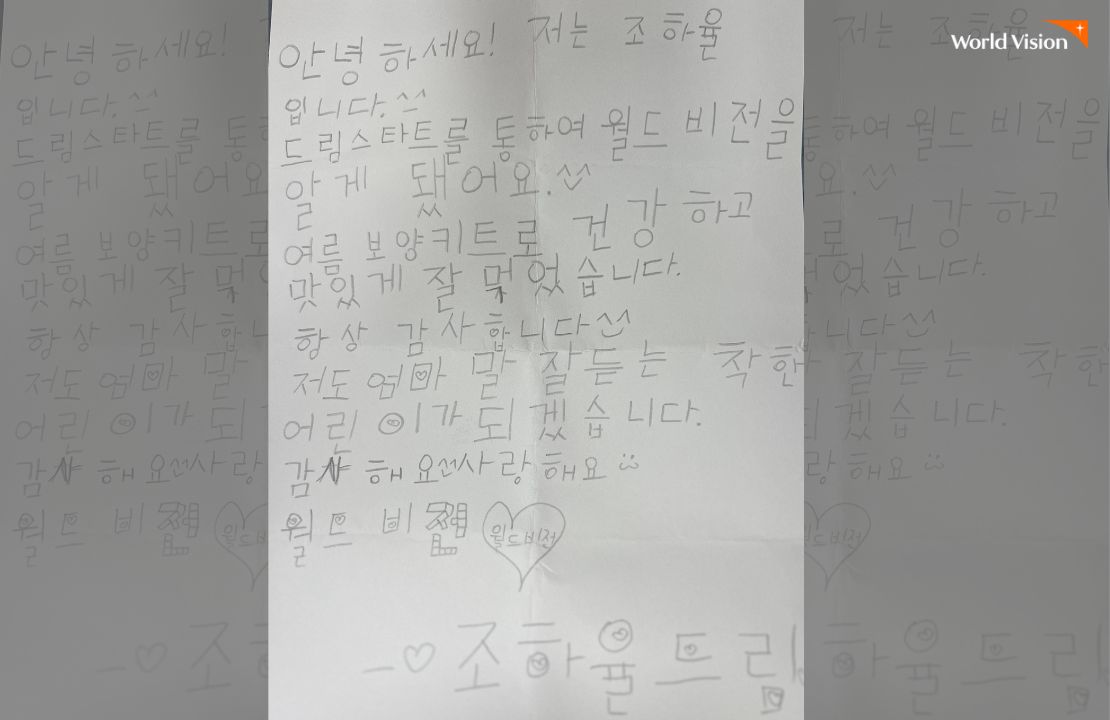 World Vision
안녕하세요! 저는 조하율
입니다.^^
드림스타트를 통하여 월드비전을
알게 됐어요.^^
여름 보양키트로 건강하고
맛있게 잘 먹었습니다.
항상 감사합니다^^
저도 엄마 말 잘듣는 착한
어린이가 되겠습니다.
감사해요 사랑해요
월드 비전 월드비전
-♡조하율드림